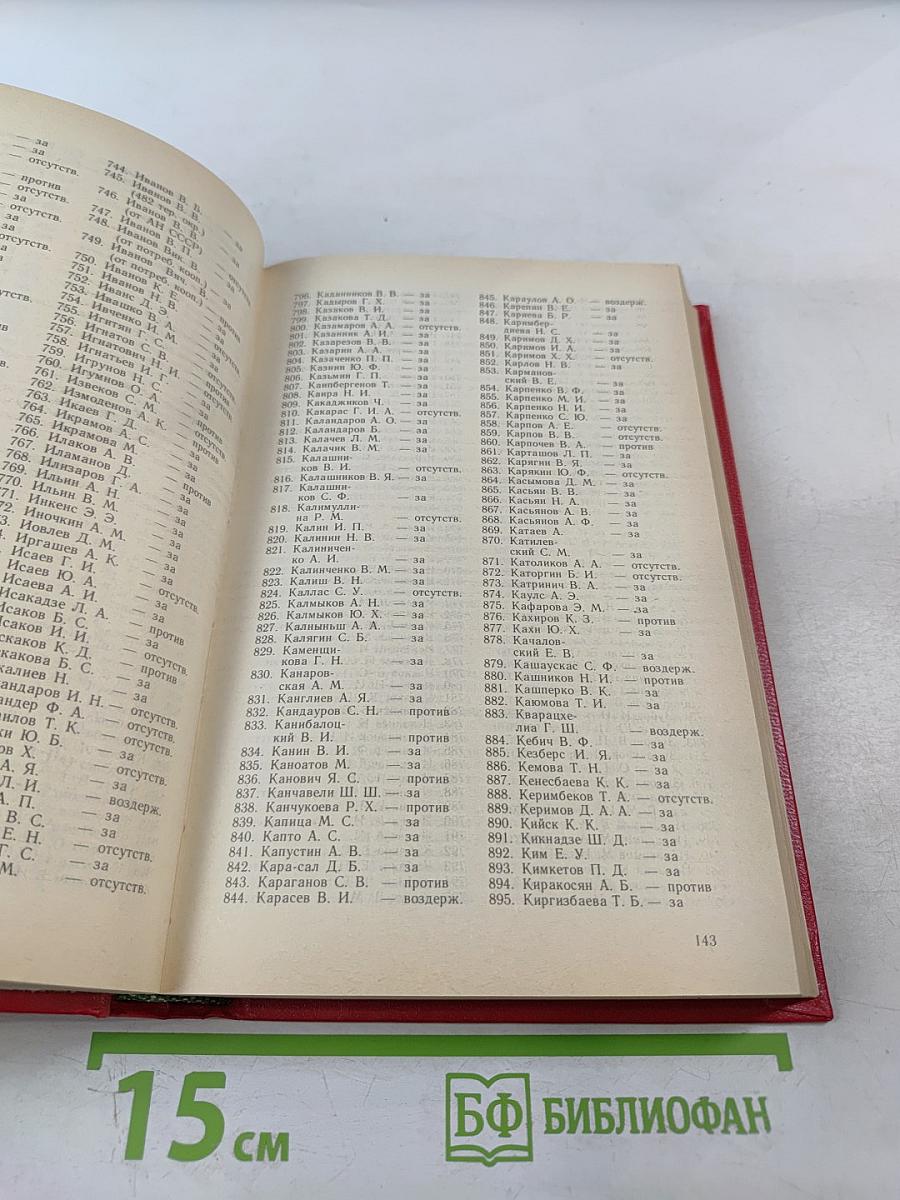 — за
— за
— отсутств.
— против
— отсутств.
— за
— отсутств.
за
за
отсутств.
744. Иванов В. Б.
745. Иванов В. В.
(482 тер. окр.) — за
746. Иванов В. В.
(от АН СССР)
747. Иванов В. П.
748. Иванов Вик. В.
(от потреб. кооп.) — за
749. Иванов Вич. В.
(от потреб. кооп.)
750. Иванов К. Е.
751. Иванов Н. В.
752. Иванс Д. Э.
753. Ивашко В. А.
754. Ивченко И. М.
755. Игитян Г. С.
756. Игнатов С. В.
757. Игнатович Н. И.
758. Игнатьев И. Г.
759. Игрунов Н. С.
760. Игумнов О. А.
761. Извеков С. М.
762. Измоденов А. К.
763. Икаев Г. Д.
764. Икрамов А. С.
765. Икрамова М.
766. Илаков А. В.
767. Иламанов Д.
768. Илизаров Г. А.
769. Ильин А. Н.
770. Ильин В. М.
771. Инкенс Э. Э.
772. Иночкин А. М.
Иовлев Д. М.
Иргашев А. К.
Исаев Г. И.
Исаев Ю. А.
Исаева А. И.
Исакадзе Л. А.
Исаков Б. С.
Исаков И. И.
скаков К. Д.
скакова Б. С.
калиев Н.
кандаров И. Н. — отсутств.
андер Ф. А.
аилов Т. К.
ки Ю. Б.
ов Х.
А. Я.
Л. И. — за
А. П. — воздерж.
В. С. — за
Е. Н. — отсутств.
Г. С. — за
М. — отсутств.
796. Каданников В. В. — за
797. Кадыров Г. Х. — за
798. Казаков В. И. — за
799. Казакова Т. Д. — за
800. Казамаров А. А. — отсутств.
801. Казанник А. И. — за
802. Казарезов В. В. — за
803. Казарин А. А. — за
804. Казаченко П. П. — за
805. Казнин Ю. Ф. — за
806. Казьмин Г. П. — за
807. Каипбергенов Т. — за
808. Каира Н. И. — за
809. Какаджиков Ч. — за
810. Какарас Г. И. А. — отсутств.
811. Каландаров А. О. — за
812. Каландаров Б. — за
813. Калачев Л. М. — за
814. Калачик В. М. — за
815. Калашни-
ков В. И. — отсутств.
816. Калашников В. Я. — за
817. Калашни-
ков С. Ф. — за
818. Калимулли-
на Р. М. — отсутств.
819. Калин И. П. — за
820. Калинин Н. В. — за
821. Калиничен-
ко А. И. — за
822. Калинченко В. М. — за
823. Калиш В. Н. — за
824. Каллас С. У. — отсутств.
825. Калмыков А. Н. — за
826. Калмыков Ю. Х. — за
827. Калныньш А. А. — за
828. Калягин С. Б. — за
829. Каменщи-
кова Г. Н. — за
830. Канаров-
ская А. М. — за
831. Канглиев А. Я. — за
832. Кандауров С. Н. — против
833. Канибалоц-
кий В. И. — против
834. Канин В. И. — за
835. Каноатов М. — за
836. Канович Я. С. — против
837. Канчавели Ш. Ш. — за
838. Канчукоева Р. Х. — против
839. Капица М. С. — за
840. Капто А. С. — за
841. Капустин А. В. — за
842. Кара-сал Д. Б. — за
843. Караганов С. В. — против
844. Карасев В. И. — воздерж.
845. Караулов А. О. — воздерж.
846. Карепин В. Е. — за
847. Каряева Б. Р. — за
848. Каримбер-
диева И. С. — за
849. Каримов Д. Х. — за
850. Каримов И. А. — за
851. Каримов Х. Х. — отсутств.
852. Карлов Н. В. — за
853. Карманов-
ский В. Е. — за
854. Карпенко В. Ф. — за
855. Карпенко М. И. — за
856. Карпенко Н. И. — за
857. Карпенко С. Ю. — за
858. Карпов А. Е. — отсутств.
859. Карпов В. В. — отсутств.
860. Карпочев В. А. — против
861. Карташов Л. П. — за
862. Карягин В. Я. — за
863. Карякин Ю. Ф. — отсутств.
864. Касымова Д. М. — за
865. Касьян В. В. — за
866. Касьян Н. А. — за
867. Касьянов А. В. — за
868. Касьянов А. Ф. — за
869. Катаев А. — за
870. Катилев-
ский С. М. — за
871. Католиков А. А. — отсутств.
872. Каторгин Б. И. — отсутств.
873. Катринич В. А. — за
874. Каулс А. Э. — за
875. Кафарова Э. М. — за
876. Кахиров К. З. — против
877. Кахн Ю. Х. — за
878. Качалов-
ский Е. В. — за
879. Кашаускас С. Ф. — воздерж.
880. Кашников Н. И. — против
881. Кашперко В. К. — за
882. Каюмова Т. И. — за
883. Кварацхе-
лиа Г. Ш. — воздерж.
884. Кебич В. Ф. — за
885. Кезберс И. Я. — за
886. Кемова Т. Н. — за
887. Кенесбаева К. К. — за
888. Керимбеков Т. А. — отсутств.
889. Керимов Д. А. А. — за
890. Кийск К. К. — за
891. Кикнадзе Ш. Д. — за
892. Ким Е. У. — за
893. Кимкетов П. Д. — за
894. Киракосян А. Б. — против
895. Киргизбаева Т. Б. — за
143
15 см
БФ БИБЛИОФАН